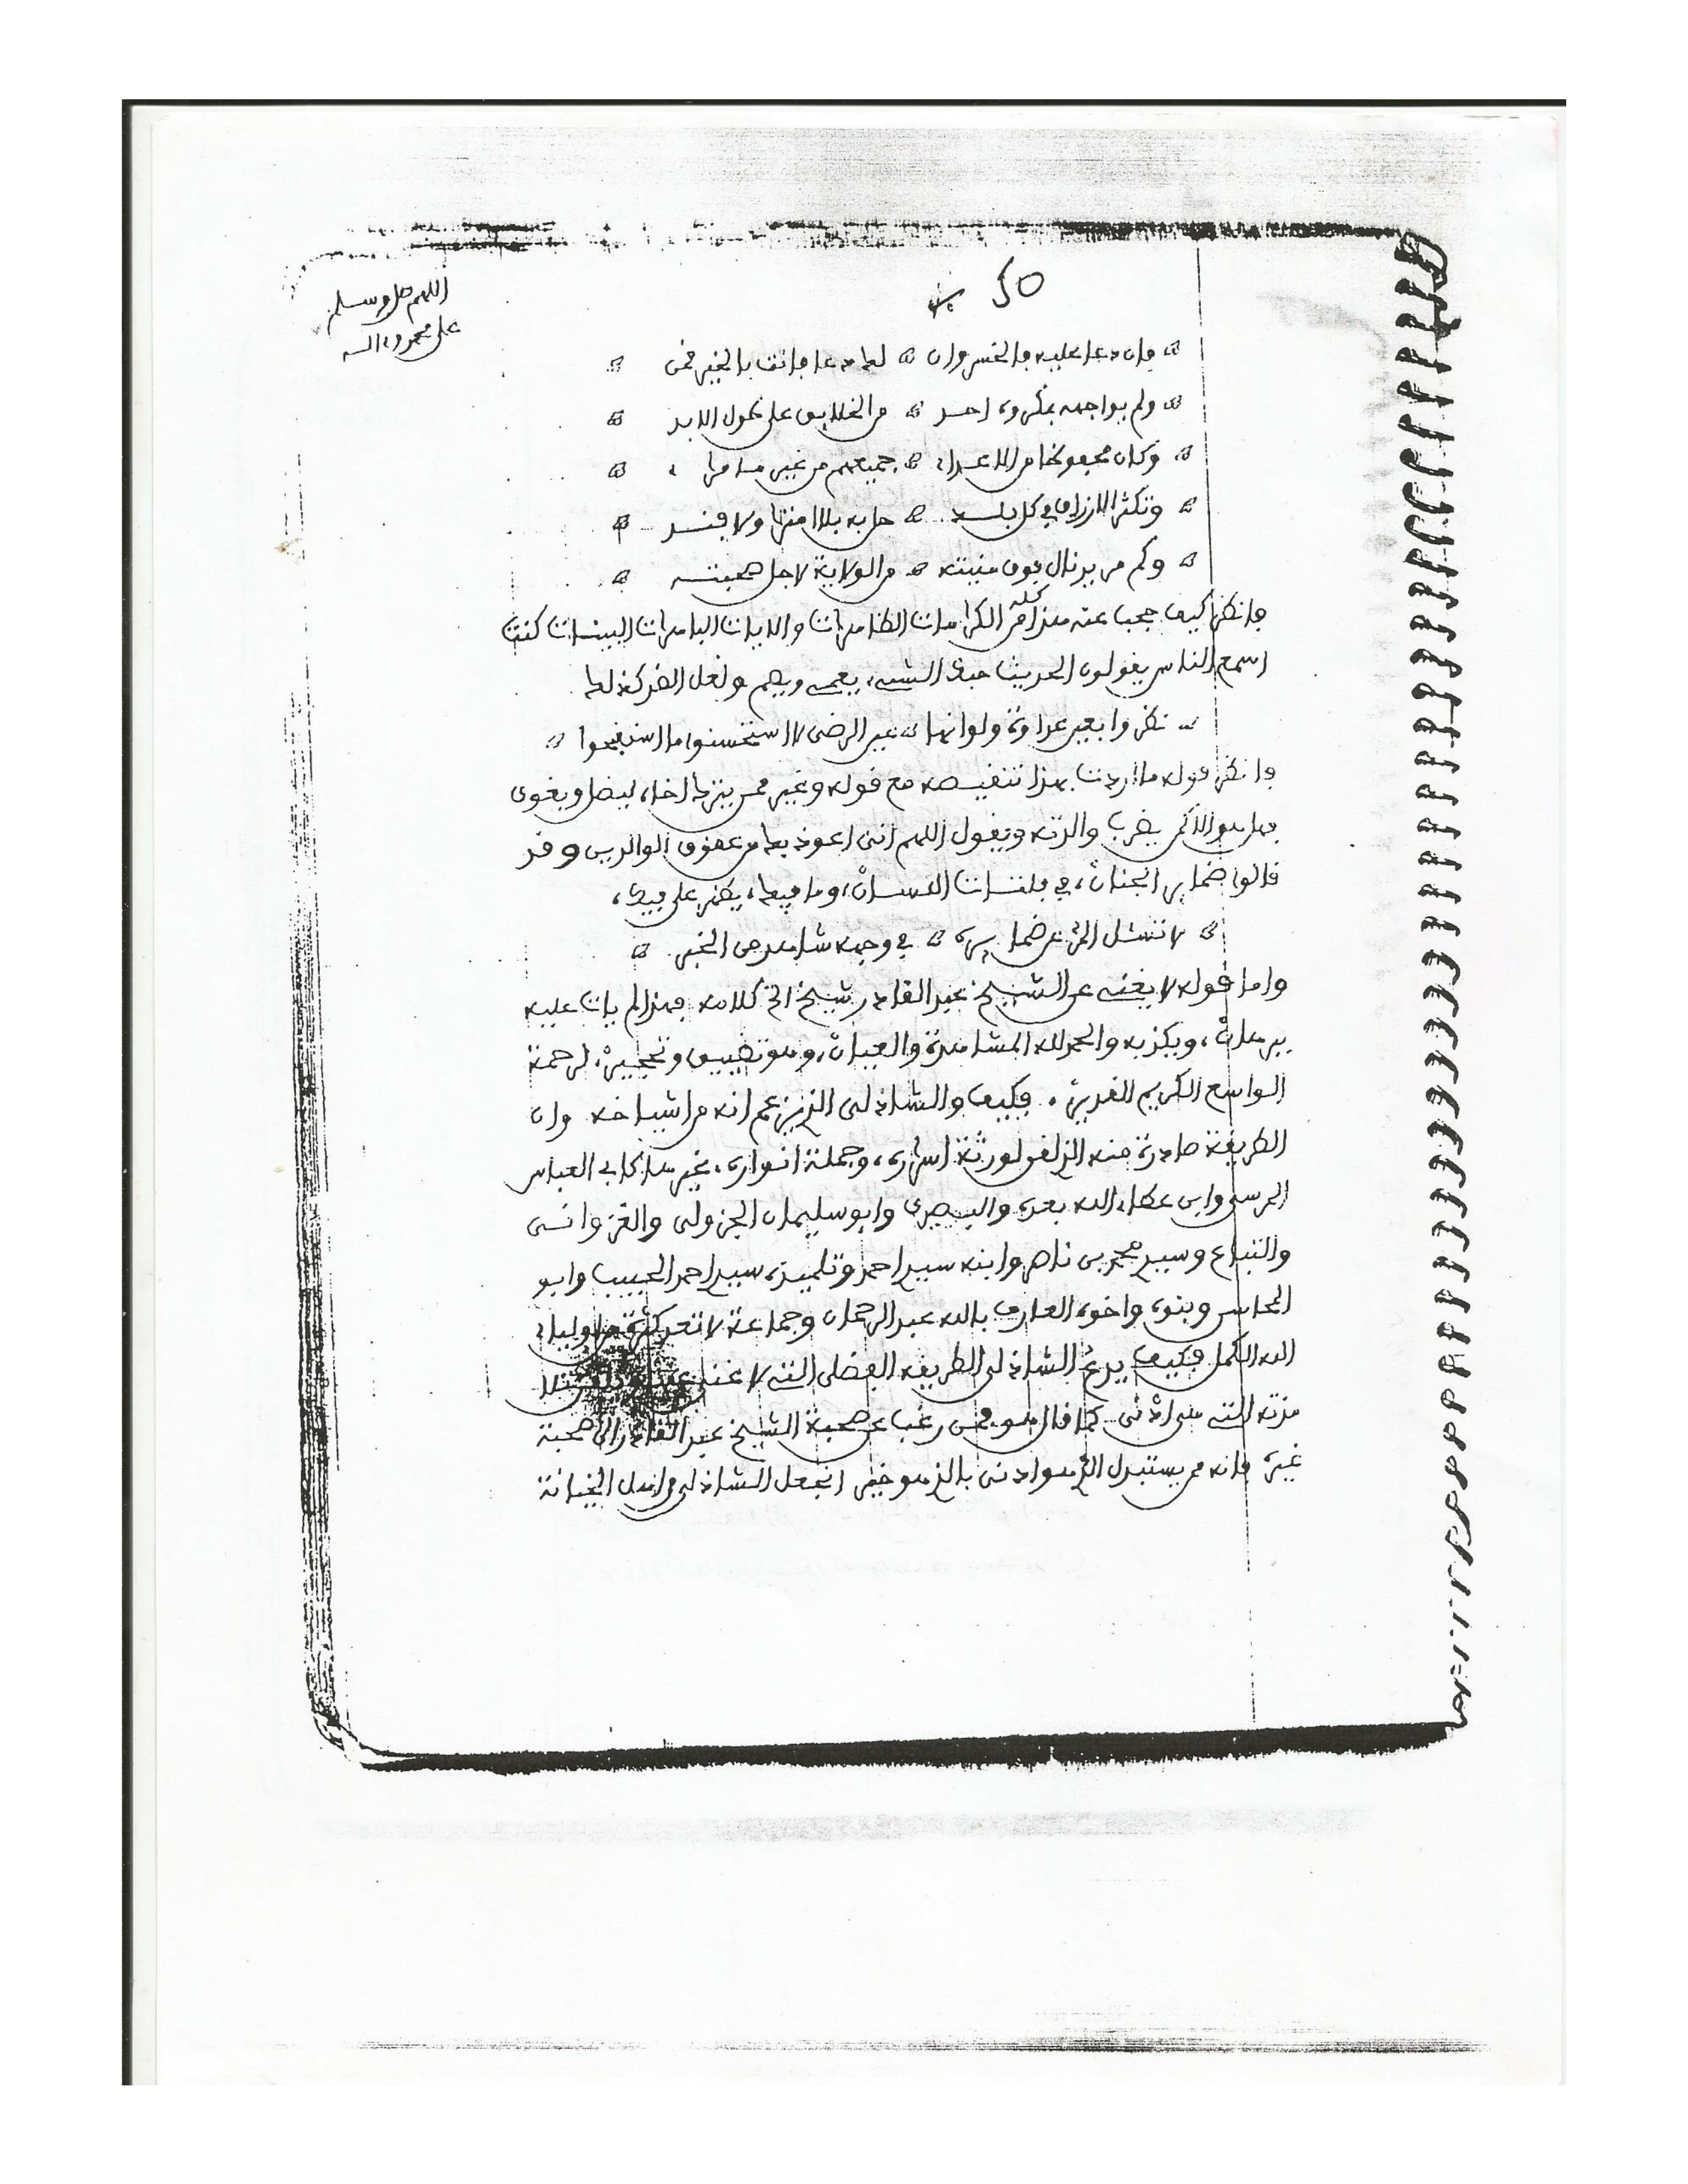 50
اللهم صل وسلم
على محمد وءاله
وان دعا عليه بالخسر وان لك دعا فانت بالخير فمن
ولم يواجهه بمكروه احد من الخلايق على طول الابد
وكان محفوظا من الاعداء جميعهم من غير
وتكثر الارزاق في كل بلد حل به بلا ولا فند
وكم مريد نال فوق منيته من الولاية لاجل صحبته
فانظر كيف حجب عنه هذا كله من الكرامات الظاهرات والايات الباهرات البينات كنت
اسمع الناس يقولون الحديث حبك الشيء يعمي ويصم ولعل الضد كذلك
نظروا بعين عداوة ولو انها عين الرضى لاستحسنوا ما استقبحوا
وانظر قوله ما اردت بهذا تنقيصه مع قوله وغير ممن بيضل ويغوى
فهل هو الا كمن يضرب والدته ويقول اللهم اني اعوذ بك من عقوق الوالدين وقد
قالوا ضماير الجنان، في فلتات اللسان، وما فيك، يظهر على فيك،
لا تسئل المرء عن ضمايره في وجهه شاهد من الخبر
واما قوله لا يغني عن الشيخ عبد القادر شيخ الخ كلامه فهذا لم يات عليه
ببرهان، ويكذبه والحمد لله المشاهدة والعيان، وهو تضييق وتحجير، لرحمة
الواسع الكريم القدير. فكيف والشاذلي الذي زعم انه من اشياخه وان
الطريقة صادرة منه الذي لقي لورثة اسراره، وجملة انواره، غير هذا كابي العباس
المرسي وابن عطاء الله بعده والبصيري وابو سليمان الجزولي والغزواني
والتباع وسيد محمد بن ناصر وابنه سيد احمد وتلميذه سيد احمد الحبيب وابو
المحاسن وبنوه واخوه العارف بالله عبد الرحمان وجماعة لا تعد كثرة من اولياء
الله الكمل فكيف يدع الشاذلي الطريقة الفضلى التي لا غنى
هذه التي هي ادنى كما قال هو فمن رغب عن صحبة الشيخ عبد القادر الى صحبة
غيره فانه ممن يستبدل الذي هو ادنى بالذي هو خير انجعل الشاذلي من اهل الخيانة